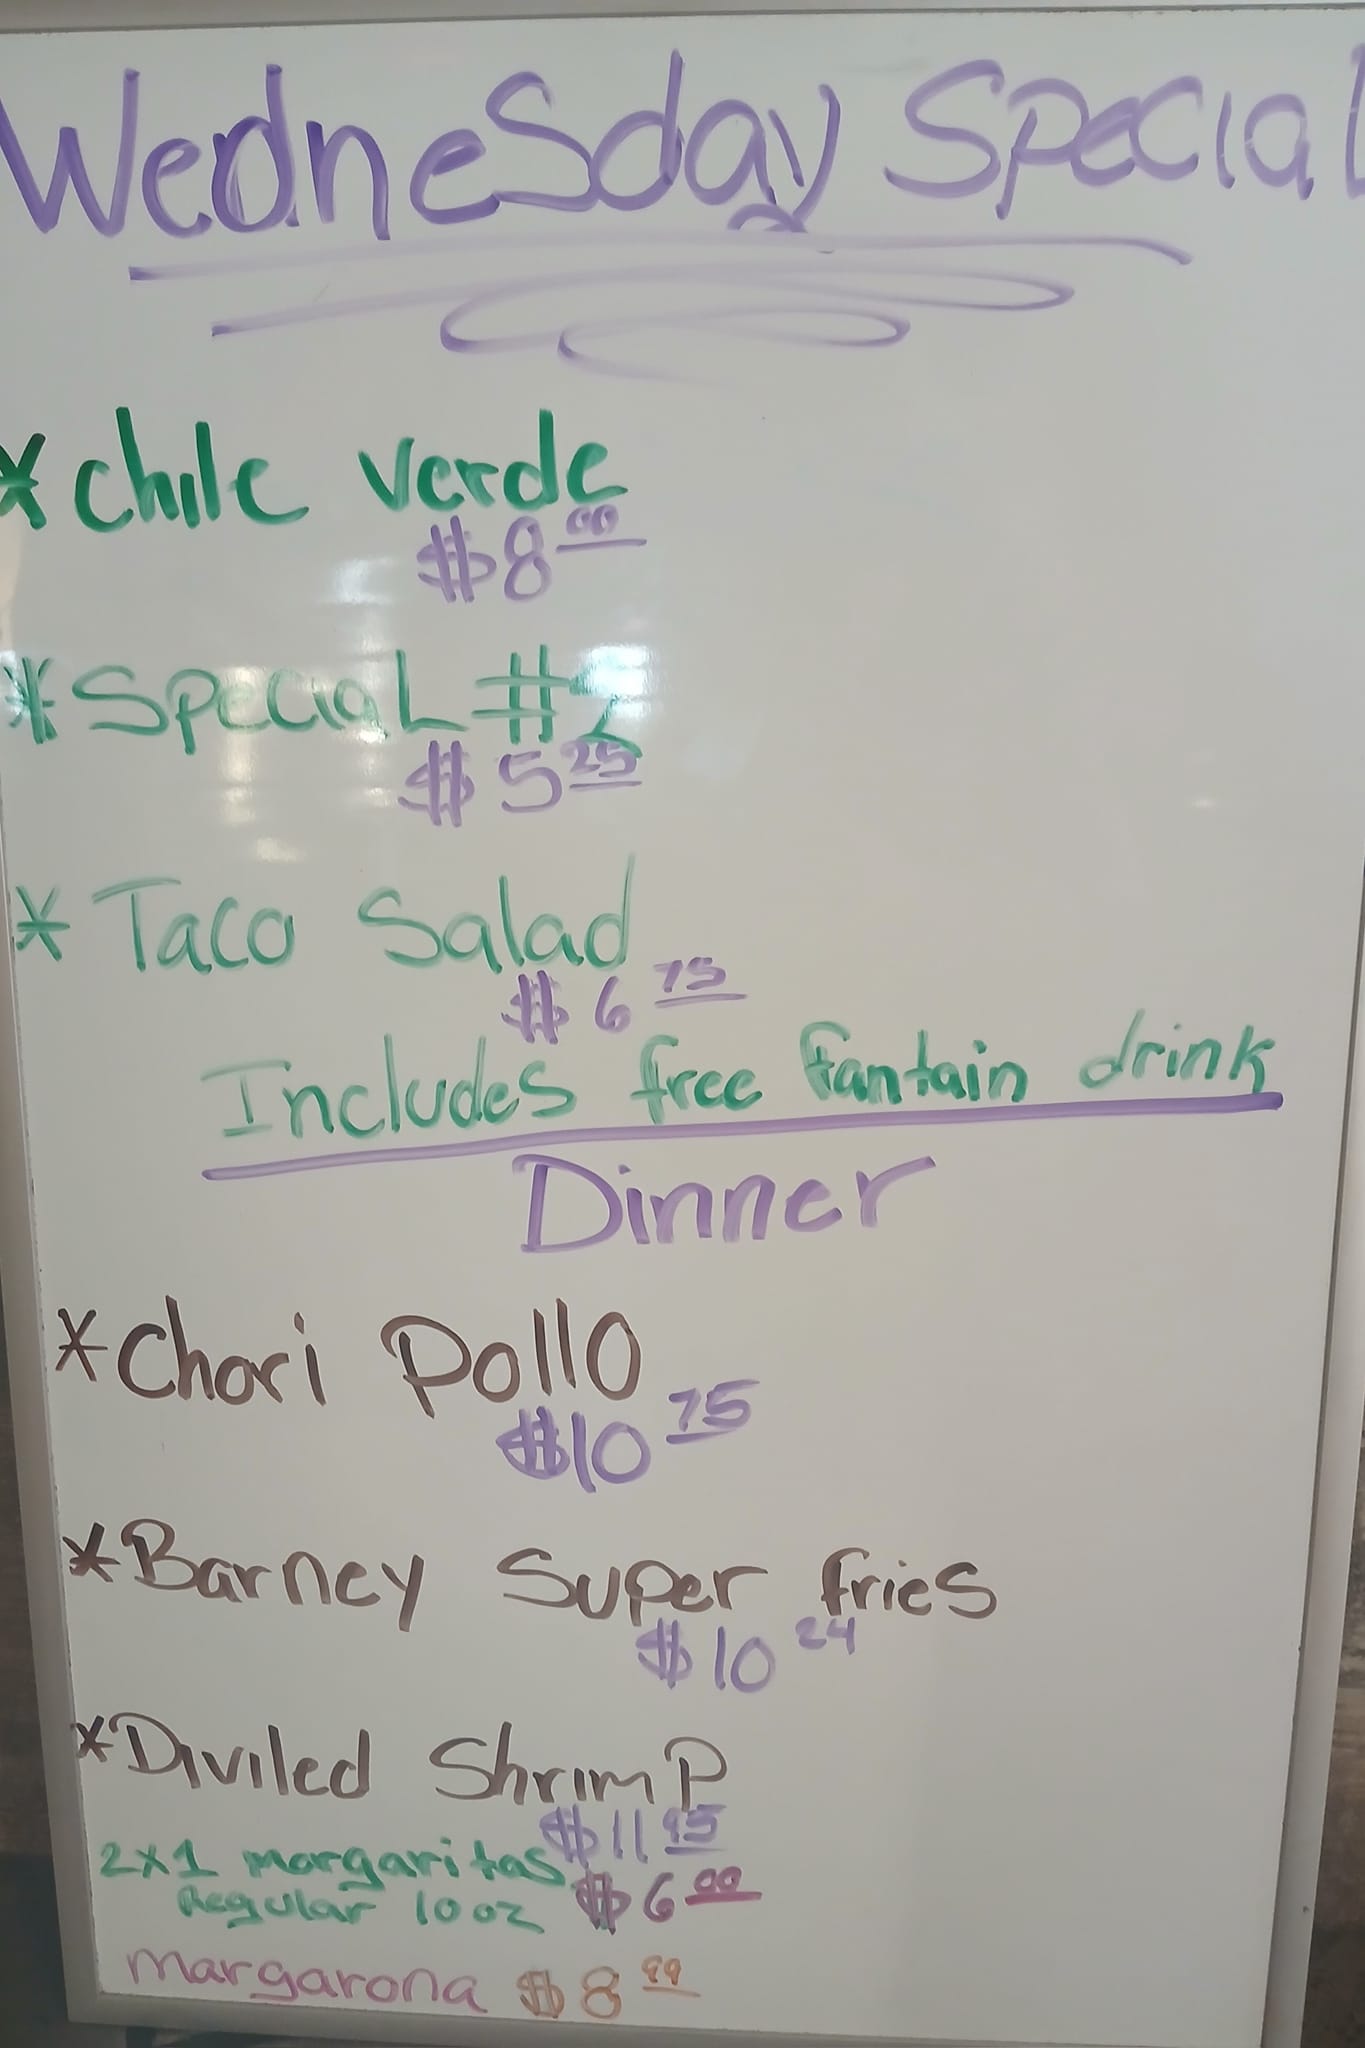 Wednesday Special
* Chile Verde
$8 00
* Special #2
$5 25
* Taco Salad
$6 75
Includes free fantain drink
Dinner
* Chori Pollo
$10 75
* Barney Super fries
$10 24
* Diviled Shrimp
$11 95
2x1 margaritas
Regular 10oz $6 00
margarona $8 99